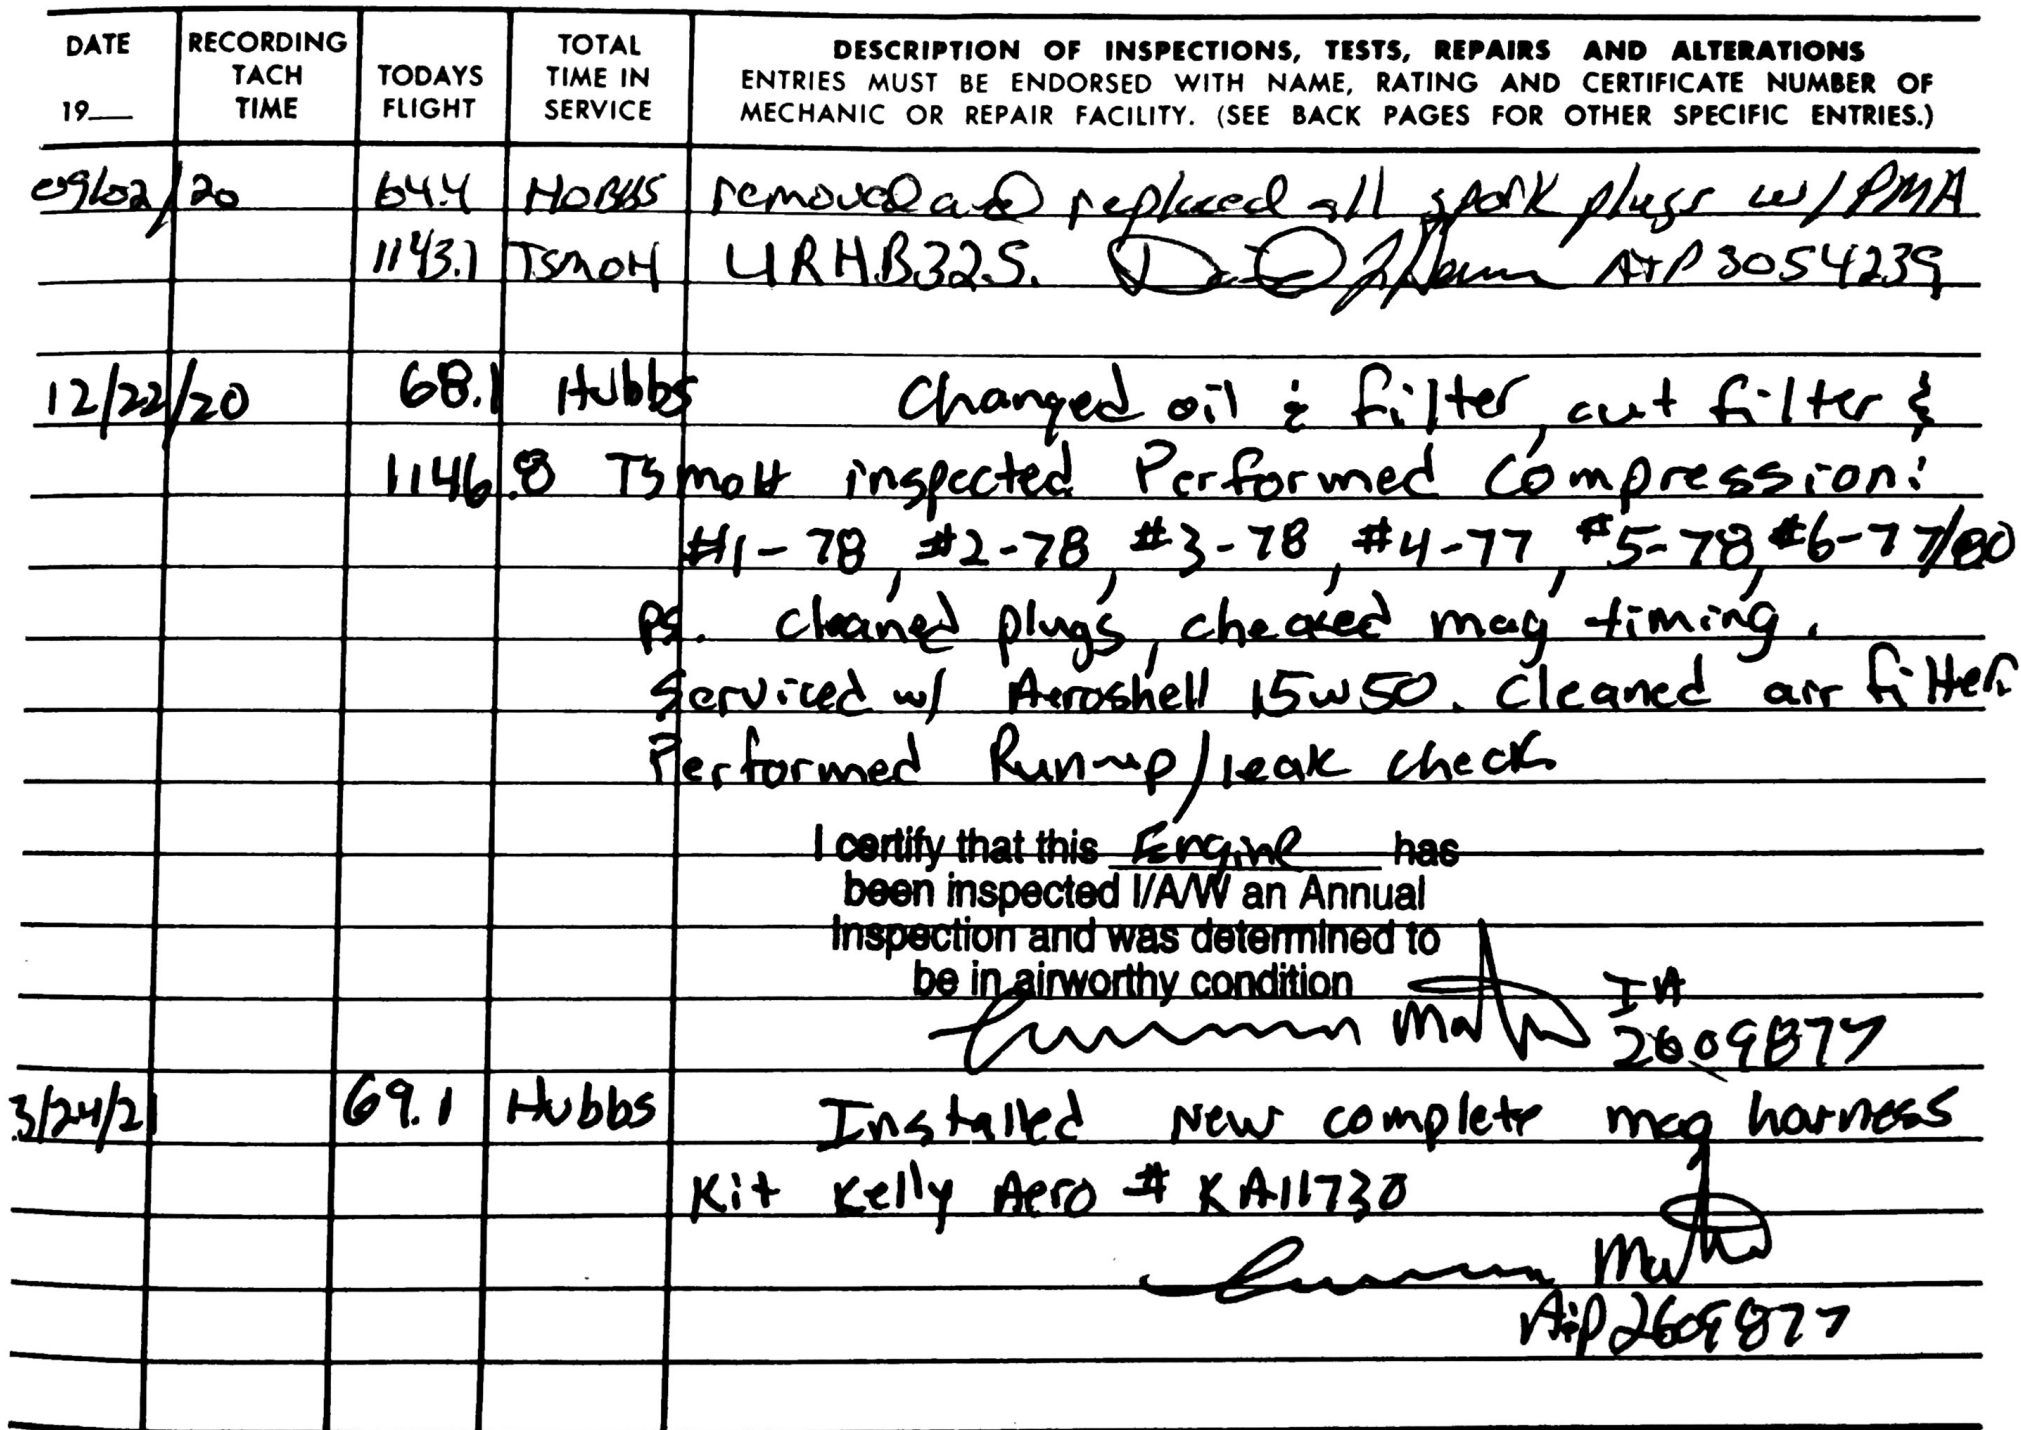 DATE RECORDING TACH TIME TODAYS FLIGHT TOTAL TIME IN SERVICE DESCRIPTION OF INSPECTIONS, TESTS, REPAIRS AND ALTERATIONS
19__ ENTRIES MUST BE ENDORSED WITH NAME, RATING AND CERTIFICATE NUMBER OF
MECHANIC OR REPAIR FACILITY. (SEE BACK PAGES FOR OTHER SPECIFIC ENTRIES.)
09/02/20 64.4 HOBBS removed and replaced all spark plugs w/ PMA
1143.1 TSMOH URHB32S. A+P 3054239
12/22/20 68.1 Hubbs Changed oil & filter, cut filter &
1146.8 TSMOH inspected. Performed Compression:
#1-78, #2-78, #3-78, #4-77, #5-78, #6-77/80
PSI. cleaned plugs, checked mag timing.
Serviced w/ Aeroshell 15w50. Cleaned air filter.
Performed Run-up/leak check
I certify that this Engine has
been inspected I/A/W an Annual
Inspection and was determined to
be in airworthy condition
IA
2609877
3/24/21 69.1 Hubbs Installed New complete mag harness
Kit Kelly Aero # KA11730
A&P 2609877